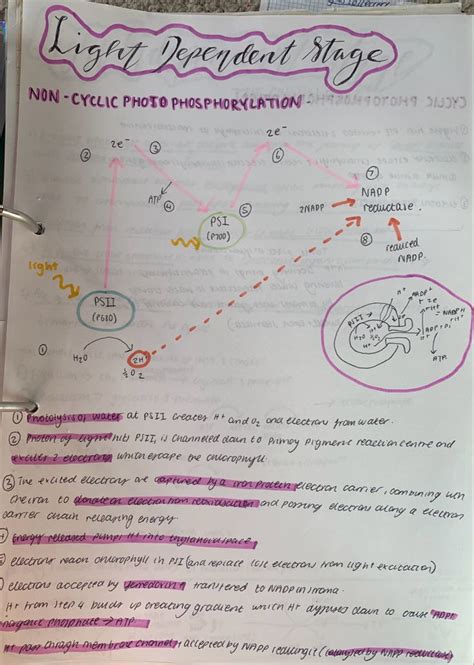 Light Dependent Stage
NON-CYCLIC PHOTOPHOSPHORYLATION.
2e⁻
2e⁻
②
③
⑥
⑦
ATP
④
⑤
PSI
(P700)
NADP
reductase.
2NADP
⑧
reduced
NADP.
light
PSII
(P680)
①
H₂O
2H
½O₂
PSII
ATP
① Photolysis of water at PSII creates H⁺ and O₂ and electrons from water.
② Photon of light hits PSII, is channeled down to primary pigment reaction centre and
excites 2 electrons which escape the chlorophyll
③ The excited electrons are captured by a iron protein electron carrier, combining with
the iron to donate an electron from reoxidisation and passing electrons along a electron
carrier chain releasing energy
Energy released pumps H⁺ into thylakoid space,
electrons reach chlorophyll in PSI (and replace lost electrons from light excitation)
electrons accepted by transfered to NADP in stroma.
H⁺ from step 4 builds up creating gradient which H⁺ diffuses down to cause ADP+
inorganic phosphate → ATP
H⁺ pass through membrane channel, accepted by NADP